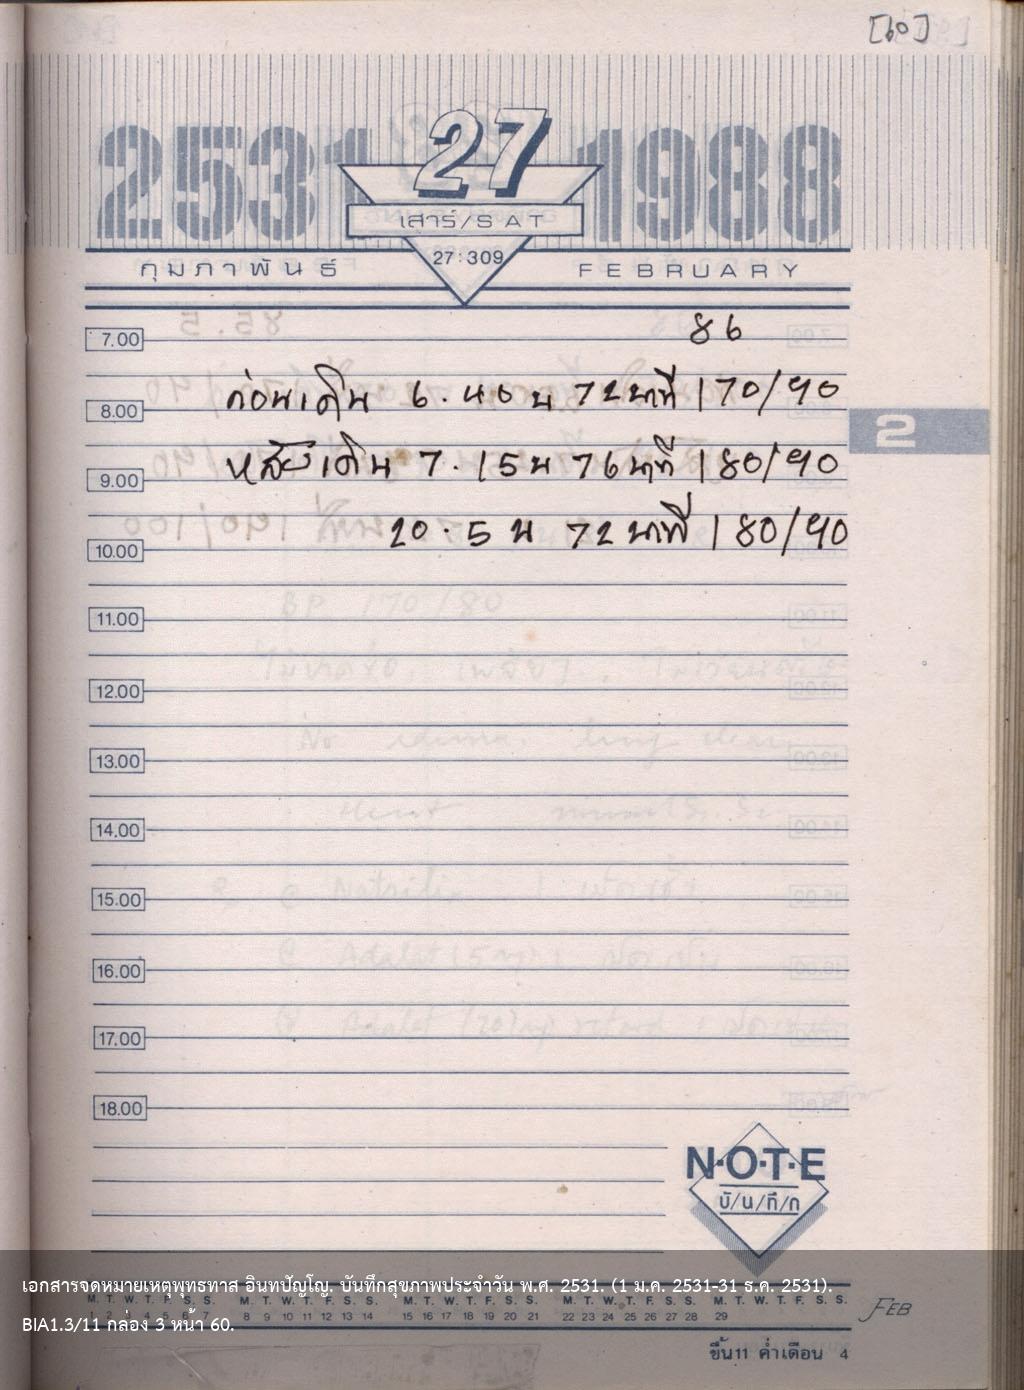 [๖๐]
2531
27
1988
เสาร์/SAT
27:309
กุมภาพันธ์
FEBRUARY
7.00
86
ก่อนเดิน 6.40 น 72 นาที 170/90
8.00
หลังเดิน 7.15 น 76 นาที 180/90
9.00
20.5 น 72 นาที 180/90
10.00
2
11.00
12.00
13.00
14.00
15.00
16.00
17.00
18.00
N·O·T·E
บั/น/ทึ/ก
เอกสารจดหมายเหตุพุทธทาส อินทปัญโญ. บันทึกสุขภาพประจำวัน พ.ศ. 2531. (1 ม.ค. 2531-31 ธ.ค. 2531).
M. T. W. T. F. S. S. M. T. W. T. F. S. S. M. T. W. T. F. S. S. M. T. W. T. F. S. S. M. T. W. T. F. S. S.
1 2 3 4 5 6 7 8 9 10 11 12 13 14 15 16 17 18 19 20 21 22 23 24 25 26 27 28 29
FEB
BIA1.3/11 กล่อง 3 หน้า 60.
ขึ้น 11 ค่ำเดือน 4